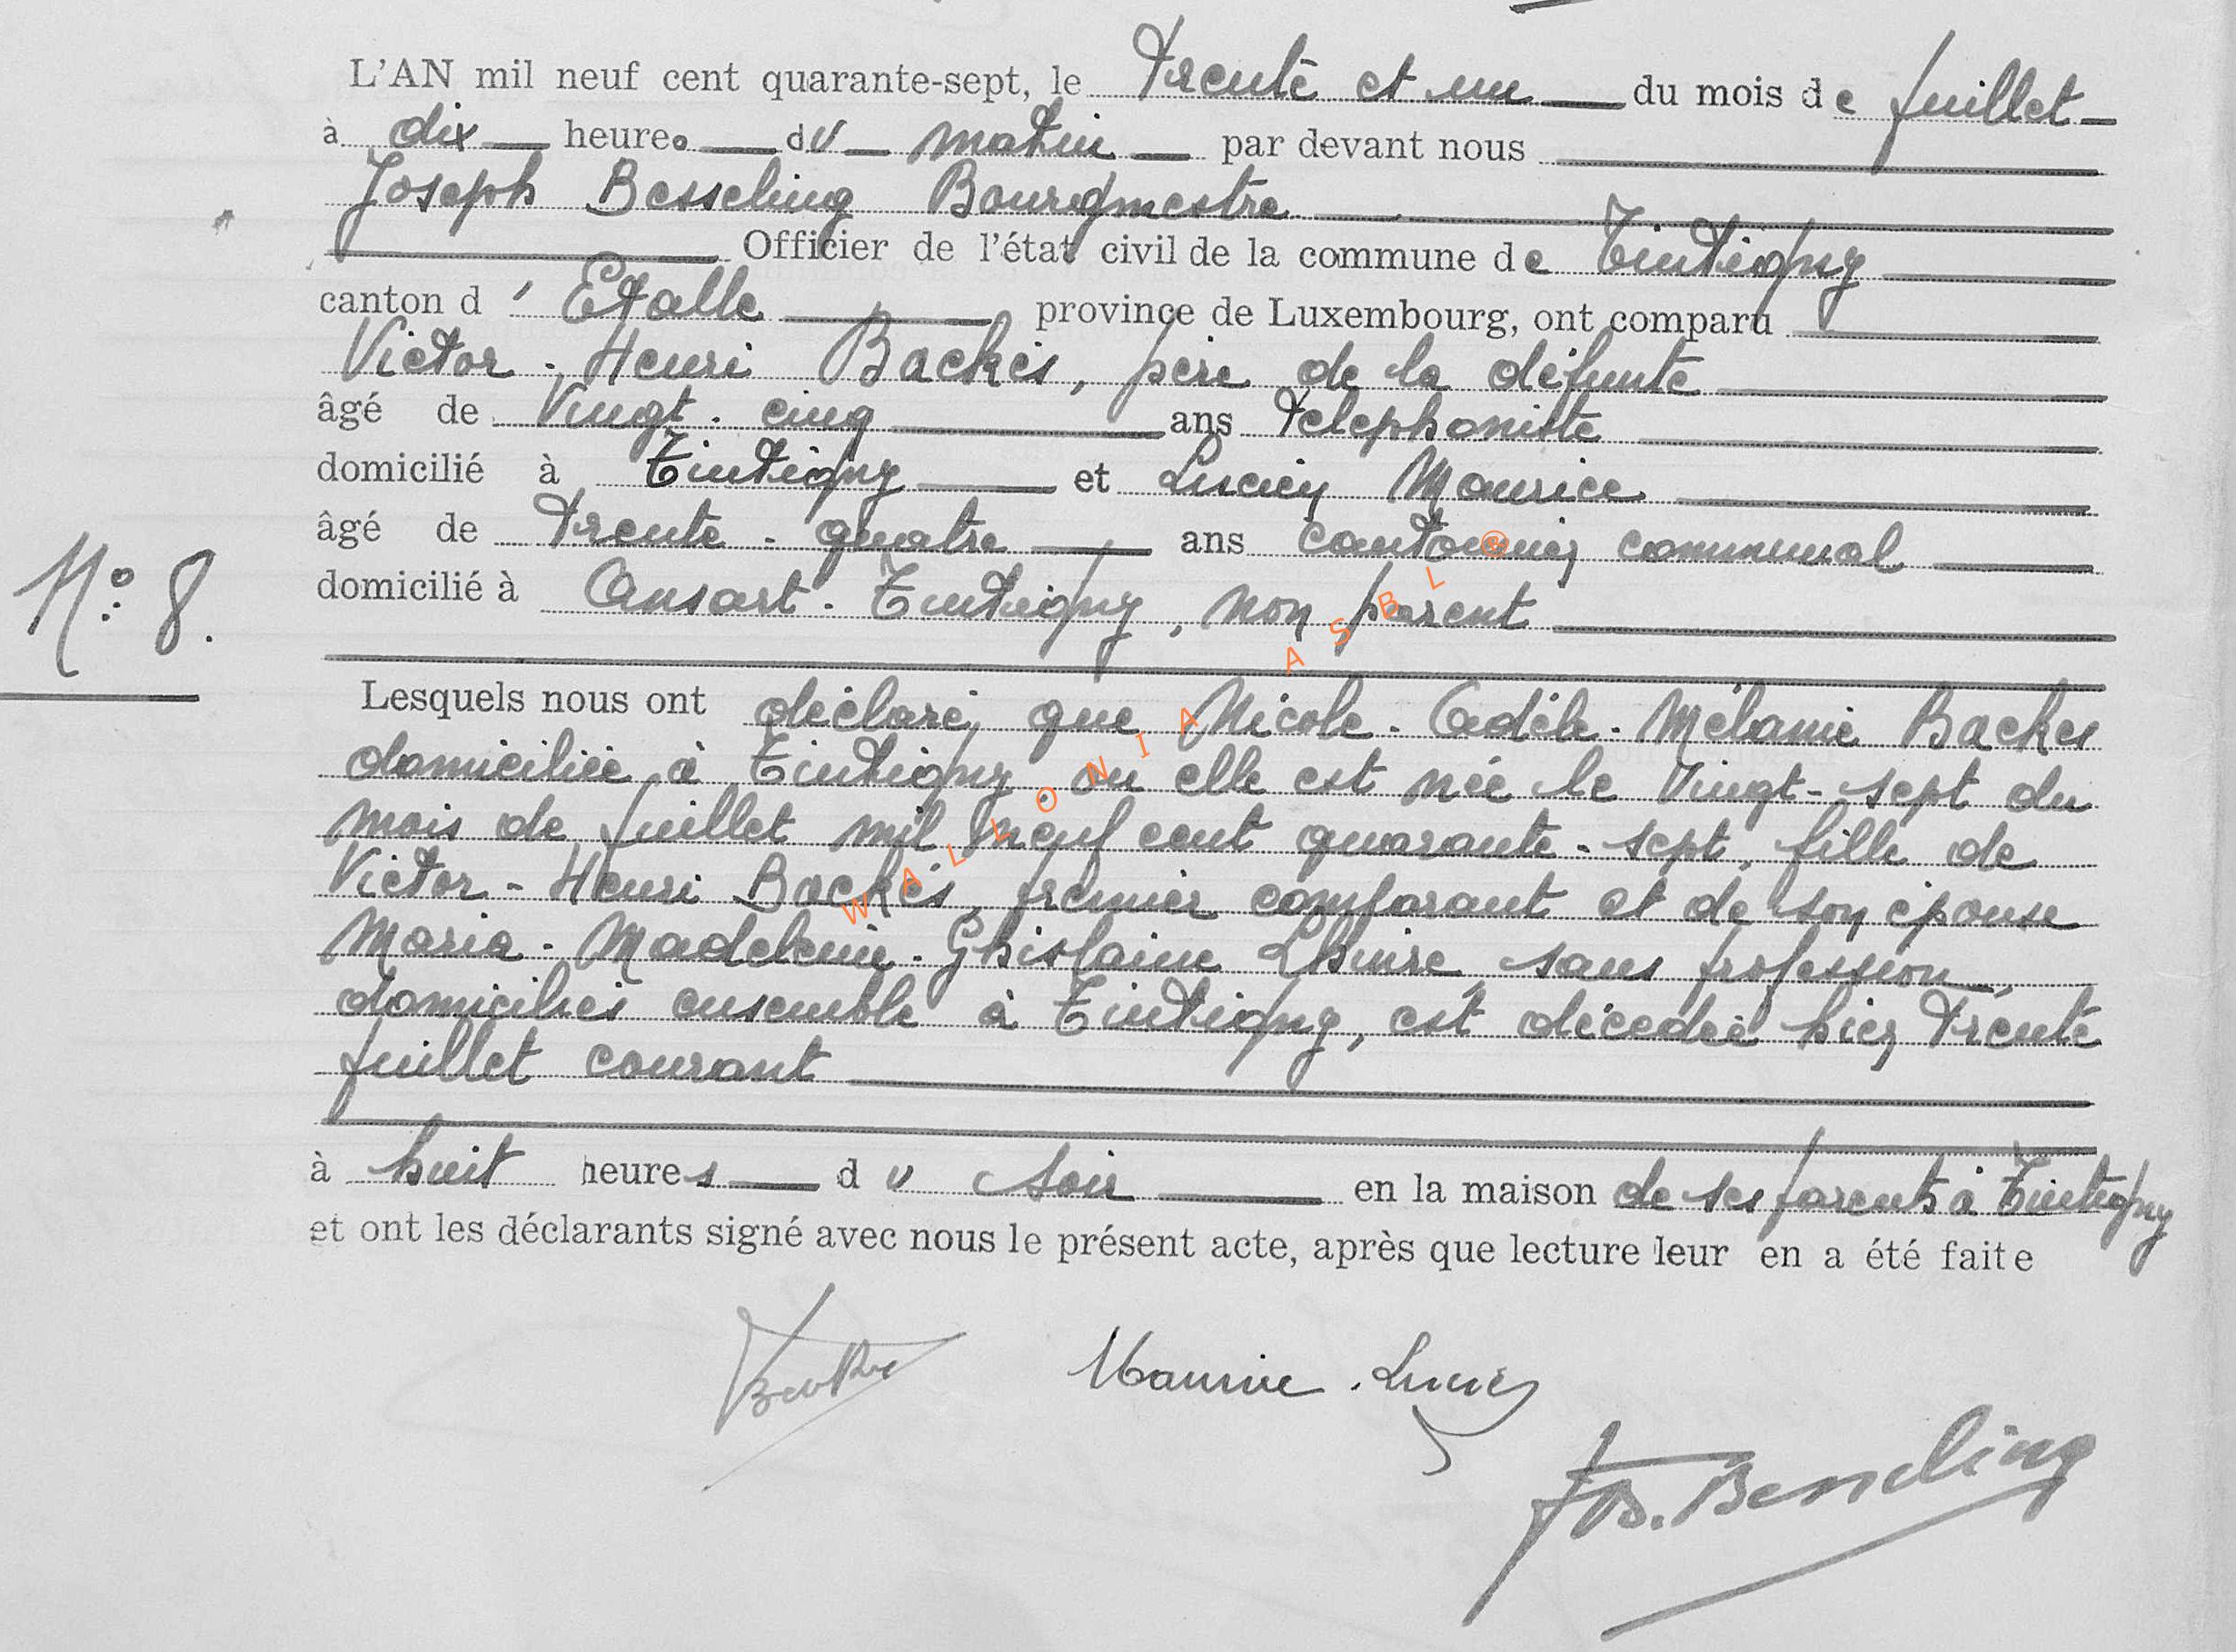 L'AN mil neuf cent quarante-sept, le trente et un du mois de juillet
à dix heures du matin par devant nous
Joseph Besseling Bourgmestre
Officier de l'état civil de la commune de Tintigny
canton d'Etalle province de Luxembourg, ont comparu
Victor-Henri Backès, père de la défunte
âgé de Vingt-cinq ans téléphoniste
domicilié à Tintigny et Lucien Maurice
âgé de trente-quatre ans cantonnier communal
N° 8.
domicilié à Ansart-Tintigny, non parent
Lesquels nous ont déclaré que Nicole-Adèle-Mélanie Backes
domiciliée à Tintigny où elle est née le Vingt-sept du
mois de juillet mil neuf cent quarante-sept, fille de
Victor-Henri Backès, premier comparant et de son épouse
Maria-Madeleine-Ghislaine Lhuire, sans profession,
domiciliés ensemble à Tintigny, est décédée hier trente
juillet courant
à huit heures du soir en la maison de ses parents à Tintigny
et ont les déclarants signé avec nous le présent acte, après que lecture leur en a été faite
Maurice. Lucien
Jos. Besseling
WALLONIA ASBL ®